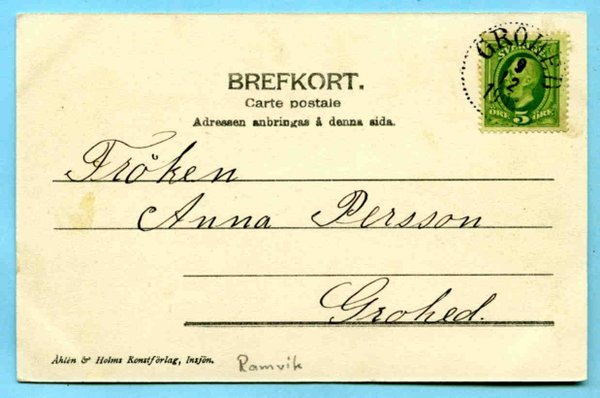 BREFKORT.
Carte postale
Adressen anbringas å denna sida.
GROHED
9
2
SVERIGE
ÖRE 5 ÖRE
Fröken
Anna Persson
Grohed.
Åhlén & Holms Konstförlag, Insjön.
Ramvik